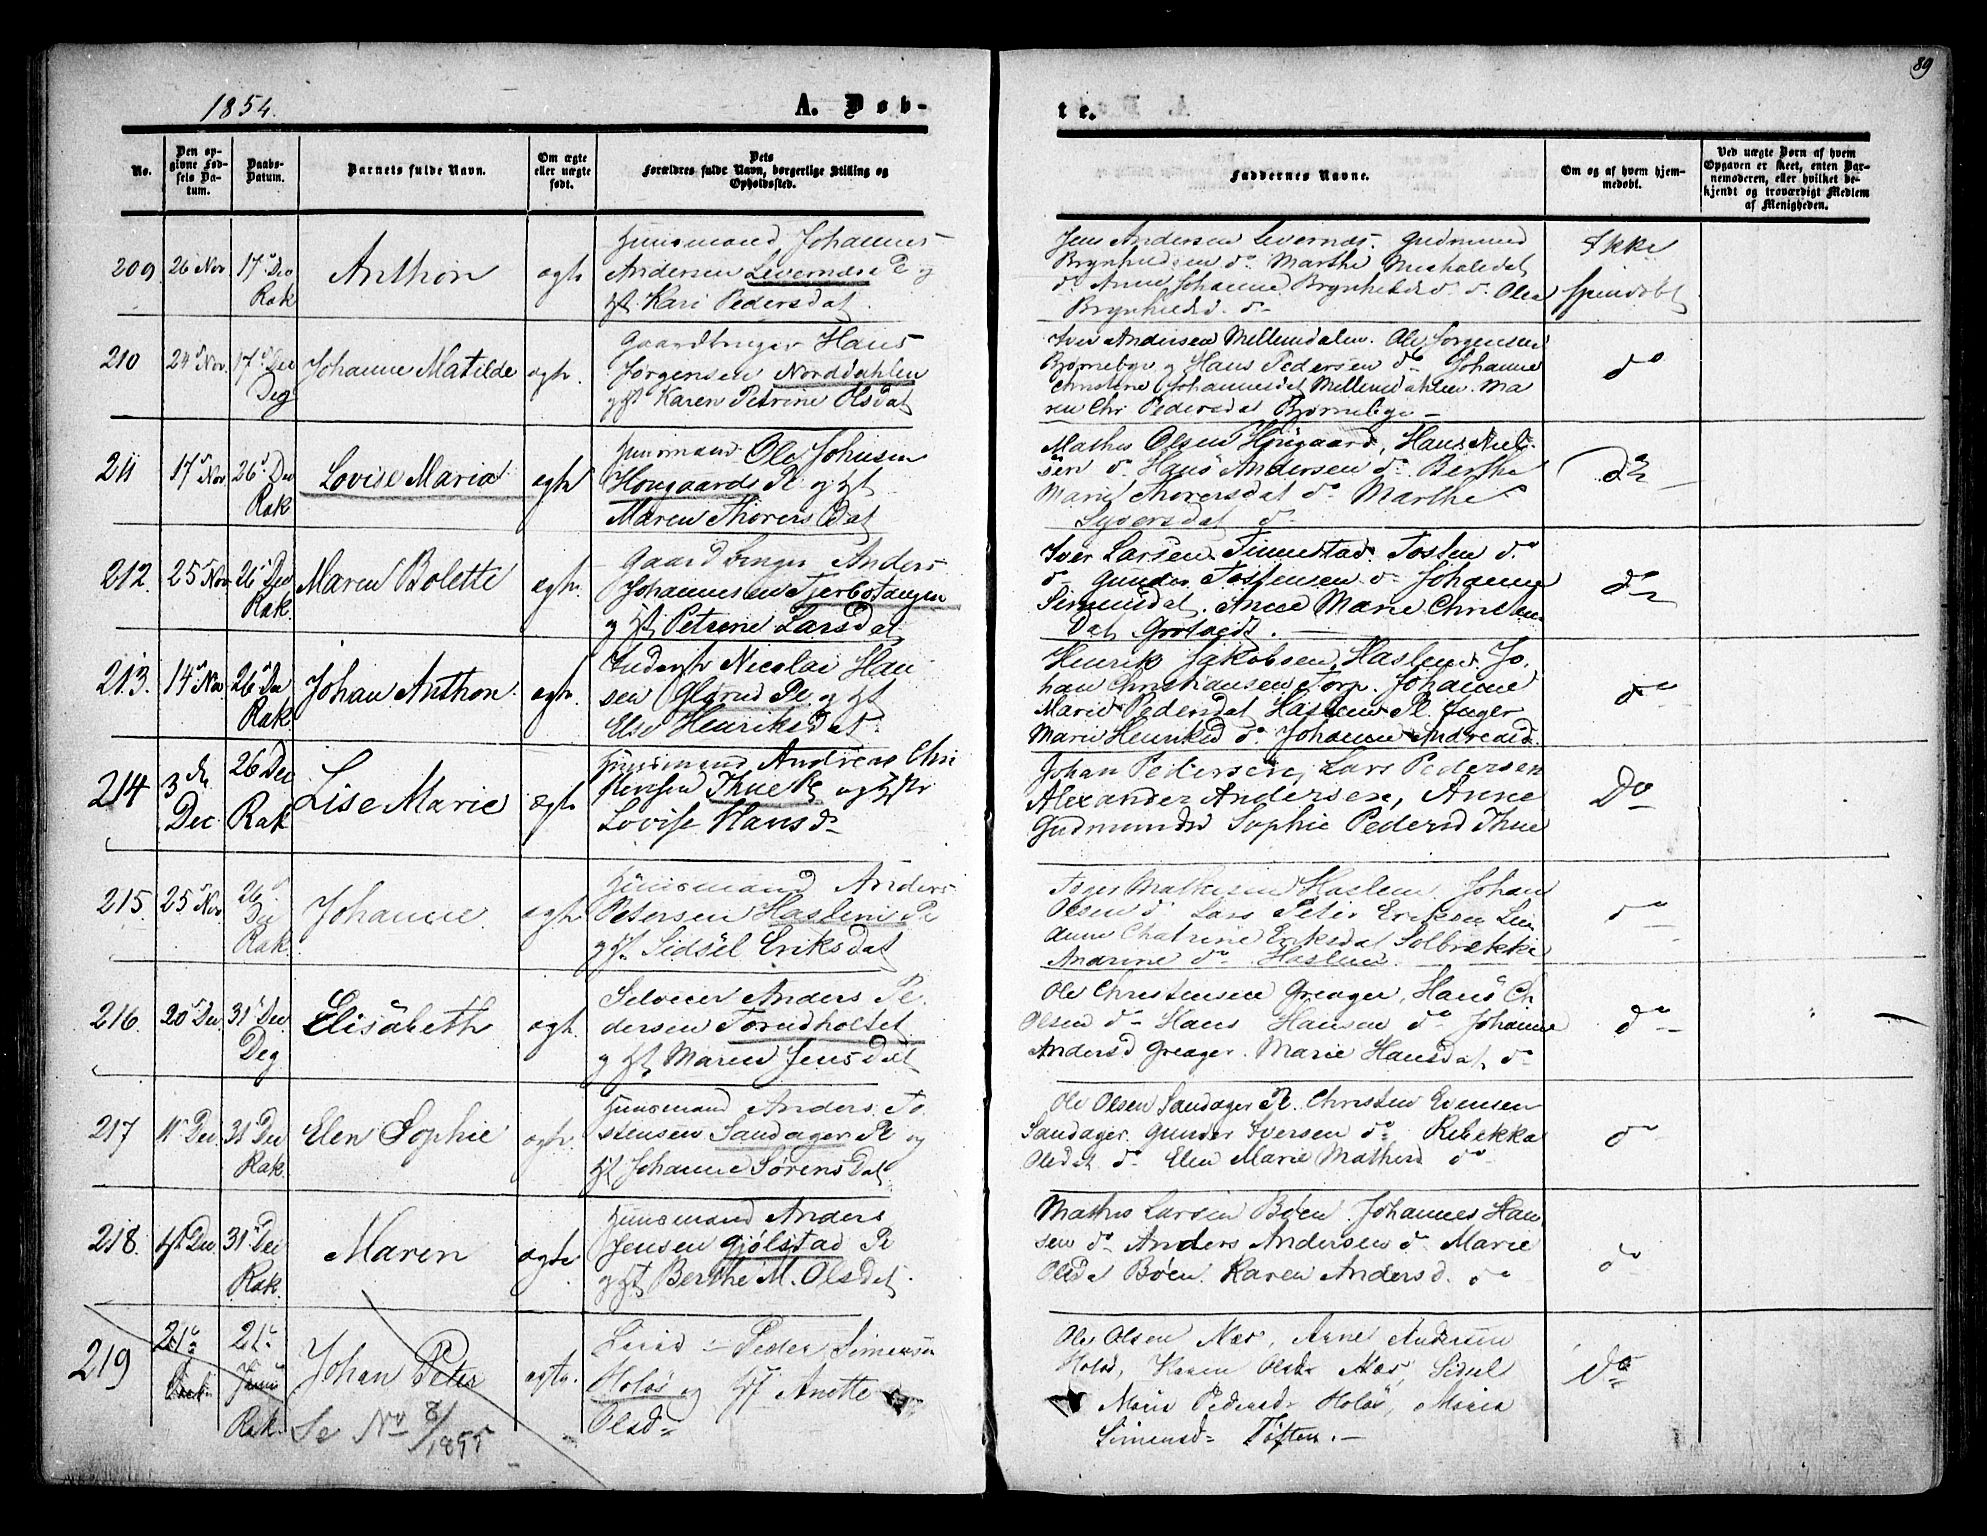 89
1854.
A. Døb-
te.
No.
Den op-
givne Fød-
sels Da-
tum.
Daabs-
Datum.
Barnets fulde Navn.
Om ægte
eller uægte
født.
Dets
Forældres fulde Navn, borgerlige Stilling og
Opholdssted.
Faddernes Navne.
Om og af hvem hjem-
medøbt.
Ved uægte Børn af hvem
Opgaven er skeet, enten Bar-
nemoderen, eller hvilket be-
kjendt og troværdigt Medlem
af Menigheden.
209 26 Nov 17 Dec
Rak
Anthon
ægte
Huusmand Johannes
Andersen Levernæs Pl og
Hst Kari Pedersdat.
Jens Andersen Levernæs. Gudmund
Brynhildsen do Marthe Michalsdat
do Anne Johanne Brynhildsd. do Olea
Brynhildsd. do
Ikke
hjemdøbt
210 24 Nov. 17 Dec
Deg
Johanne Matilde
ægte.
Gaardbruger Hans
Jørgensen Norddahlen
og Hst Karen Petrine Olsdat
Iver Andersen Mellemdalen. Ole Jørgensen
Bjørneby og Hans Pedersen do Johanne
Christine Johannesdat Mellemdahlen. Ma
ren Chr Pedersdat Bjørneby
do
211 17 Nov 26 Dec
Rak
Lovise Maria
ægte
Huusmand Ole Johnsen
Hougaard Pl og Hst
Maren Thorersdat
Mathis Olsen Hougaard, Hans Niel-
sen do Hans Andersen do Berthe
Marie Thorersdat do Marthe
Syversdat do
do
212. 25 Nov 26 Dec
Rak.
Maren Bolette
ægte.
Gaardbruger Anders
Johannesen Tjerbotangen
og Hst Petrine Larsdat
Iver Larsen Tinnestad. Tosten do
do Gunder Tostensen do Johanne
Simensdat. Anne Marie Christen
Dat Grotvedt.
do
213. 14 Nov 26 Dec
Rak.
Johan Anthon.
ægte.
Inderst Nicolai Han
sen Glørud Pl og Hst
Else Henriksdat
Henrik Jakobsen, Haslem. Jo,
han Christiansen Torp. Johanne
Marie Pedersdat Haslem Pl. Inger
Marie Henriksd do. Johanne Andreasd.
do
214 3 Dec. 26 Dec
Rak
Lise Marie
ægte
Huusmand Andreas Chri
stensen Thue Pl og Hst
Lovise Hansd
Johan Pedersen, Lars Pedersen
Alexander Andersen, Anne
Gudmundsd Sophie Pedersd Thue
Do
215. 25 Nov 26 Dec
Rak.
Johanne
ægte
Huusmand Anders
Petersen Haslem Pl
og Hst Sidsel Eriksdat
Inger Mathisen Haslem Johan
Olsen do Lars Peter Eriksen
Chatrine Eriksdat Solbrekke
Andrine do Haslem.
do
216. 20 Dec 31 Dec.
Deg
Elisabeth
ægte.
Selveier Anders Pe
dersen Torudholtet
og Hst Maren Jensdat
Ole Christensen Greager, Hans Ch
Olsen do Hans Hansen do Johanne
Andersd Greager. Marie Hansdat do
do
217 11 Dec 31 Dec
Rak.
Elen Sophie
ægte.
Huusmand Anders To
stensen Sandager Pl og
Hst Johanne Sørensdat
Ole Olsen Sandager Pl. Christen Evensen
Sandager. Gunder Iversen do Rebekka
Olsdat do Elen Marie Mathisd do
do
218. 4 Dec 31 Dec
Rak.
Maren
ægte
Huusmand Anders
Jensen Gjølstad Pl
og Hst Berthe M. Olsdat.
Mathis Larsen Bøen Johannes Han
sen do Anders Andersen do Marie
Olsdat Bøen. Karen Andersd. do
do
219 21 21
Rak.
Johan Peter
Se No 8/1855
ægte.
Peder Simensen
Holøs og Hst Anette
Olsd
Ole Olsen Næs, Arne Andersen
Holøs, Karen Olsd Næs, Sidsel
Marie Pedersd Holøs, Maria
Simensd Toften.
do